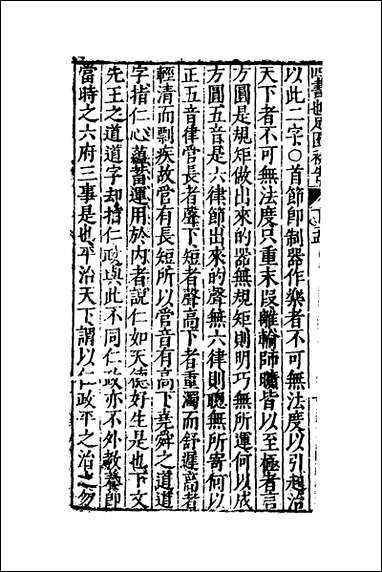 四書也足園初告
以此二字○首節即制器作樂者不可無法度以引起治
天下者不可無法度只重末段離輪師曠皆以至極者言
方圓是規矩做出來的器無規矩則明巧無所運何以成
方圓五音是六律節出來的聲無六律則聰無所寄何以
正五音律管長者聲下短者聲高下者重濁而舒遲高者
輕清而剽疾故管有長短所以管音有高下堯舜之道道
字指仁心蘊蓄運用於內者說仁如天德好生是也下文
先王之道道字却指仁政與此不同仁政亦不外教養即
當時之六府三事是也平治天下謂以仁政平之治之勿